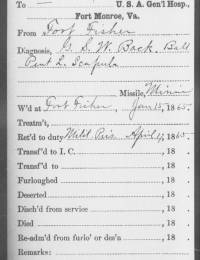 To — U. S. A. Gen'l Hosp.,
Fort Monroe, Va.
From Fort Fisher
Diagnosis, G. S. W. Back. Ball
Pent L. Scapula
Missile, Minnie
W'd at Fort Fisher, Jan 15, 1865.
Treatm't,
Ret'd to duty April 18
Transf'd to I. C. , 18 .
Transf'd to , 18 .
Furloughed , 18 .
Deserted , 18 .
Disch'd from service , 18 .
Died , 18 .
Re-adm'd from furlo' or des'n , 18 .
Remarks: